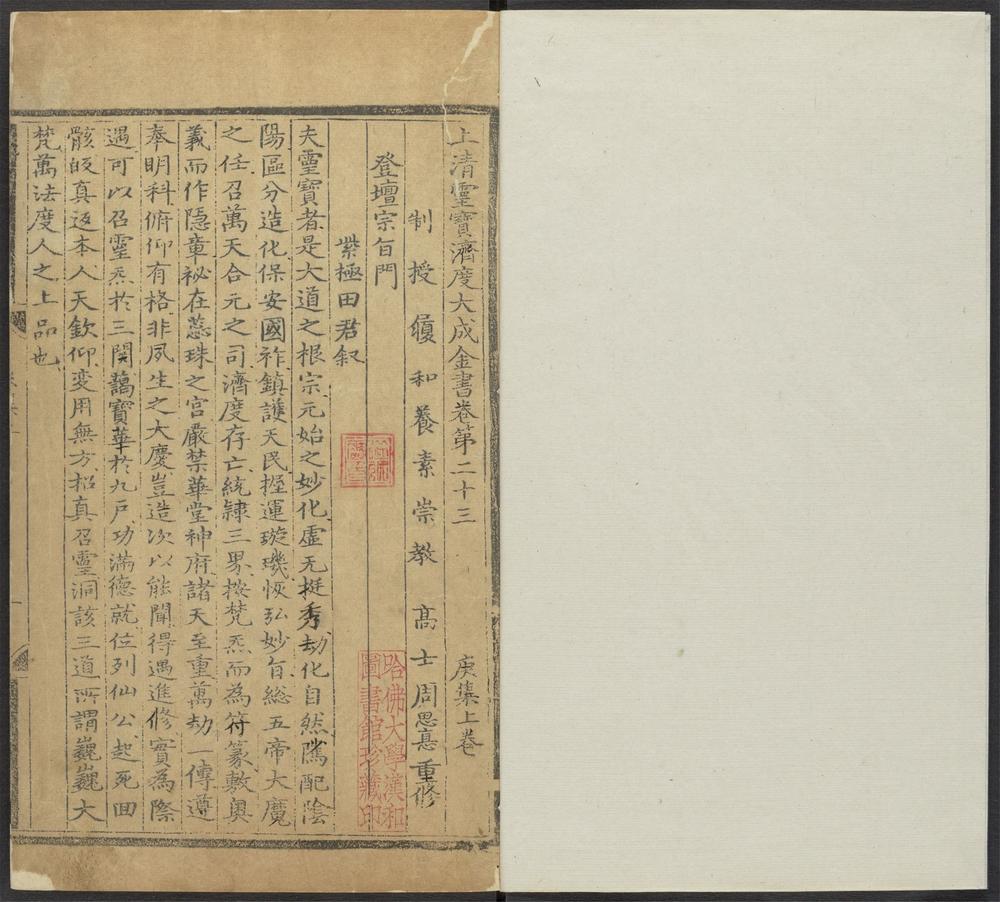 上清靈寶濟度大成金書卷第二十三 庚集上卷
制授履和養素崇教高士周思悳重修
登壇宗旨門
紫極田君叙
夫靈寶者是大道之根宗元始之妙化虛无挺秀劫化自然隲配陰
陽區分造化保安國祚鎮護天民握運璇璣恢弘妙旨総五帝大魔
之任召萬天合元之司濟度存亡統隷三界按梵炁而為符篆敷奧
義而作隠章袐在蕊珠之宮嚴禁華堂神府諸天至重萬劫一傳遵
奉明科俯仰有格非夙生之大慶豈造次以能聞得遇進修實為際
遇可以召靈炁於三関藹寶華於九户功滿德就位列仙公起死回
骸皈真返本人天欽仰変用無方招真召靈洞該三道所謂巍巍大
梵萬法度人之上品也
哈佛大學漢和
圖書館珍藏印